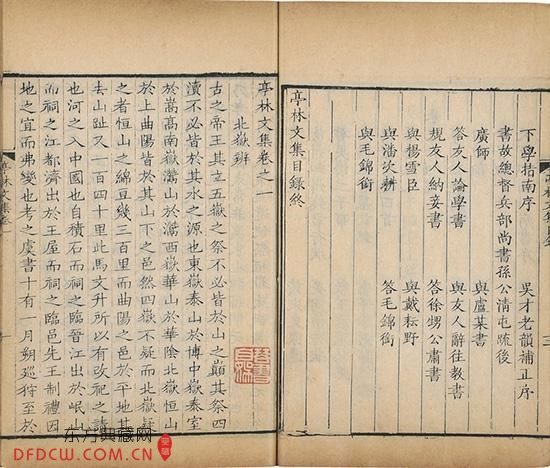 下學指南序　吳才老韻補正序
書故總督兵部尚書孫公清屯疏後
廣師　與盧某書
答友人論學書　與友人辭往教書
規友人納妾書　答徐甥公肅書
與楊雪臣　與戴耘野
與潘次耕　答毛錦銜
與毛錦銜
亭林文集目錄終
亭林文集卷之一
北嶽辨
古之帝王其立五嶽之祭不必皆於山之巔其祭四
瀆不必皆於其水之源也東嶽泰山於博中嶽泰室
於嵩高南嶽灊山於灊西嶽華山於華陰北嶽恒山
於上曲陽皆於其山下之邑然四嶽不疑而北嶽疑
之者恒山之綿亘幾三百里而曲陽之邑於平地其
去山趾又一百四十里此馬文升所以有改祀之請
也河之入中國也自積石而祠之臨晉江出於岷山
而祠之江都濟出於王屋而祠之臨邑先王制禮因
地之宜而弗變也考之虞書十有一月朔巡狩至於
亭林文集卷一
东方典藏网
DFDCW.COM.CN